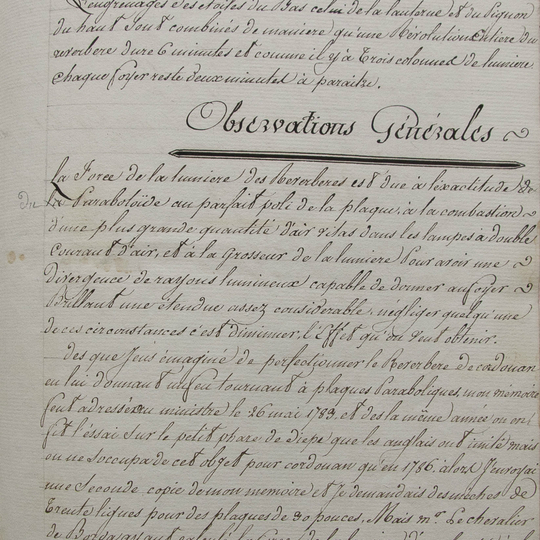 Lengrenages des étoiles du Bas celui de la lanterne et du Pignon
du haut sont combinés de maniere qu'une Revolution Entiere du
reverbere dure 6 minutes et comme il y a trois colonnes de lumiere
chaque foyer reste deux minutes à paraitre.
Observations Générales
La Force de la lumiere des Reverberes est due à lexactitude de
du La Paraboloïde au parfait poli de la plaque, à la combustion
d'une plus grande quantité d'air dans les lampes à double
courant d'air, et à la Grosseur de la lumiere Pour avoir une
divergence de rayons lumineux capable de donner au foyer
Brillant une étendue assez considerable, négliger quelqu'une
de ces circonstances c'est diminuer l'Effet qu'on veut obtenir.
des que Jeus imaginé de perfectionner le Reverbere de cordouan
en lui donnant un feu tournant à plaques Paraboliques, mon mémoire
fut adressé au ministre le 26 mai 1783, et des la même année on en
fit l'éssai sur le petit phare de dieppe que les anglais ont imité mais
on ne soccupa de cet objet pour cordouan qu'en 1786. alors J'envoyai
une Seconde copie de mon mémoire et Je demandais des mêches de
Trente lignes pour des plaques de 30 pouces. Mais mr. Le chevalier
de Borda